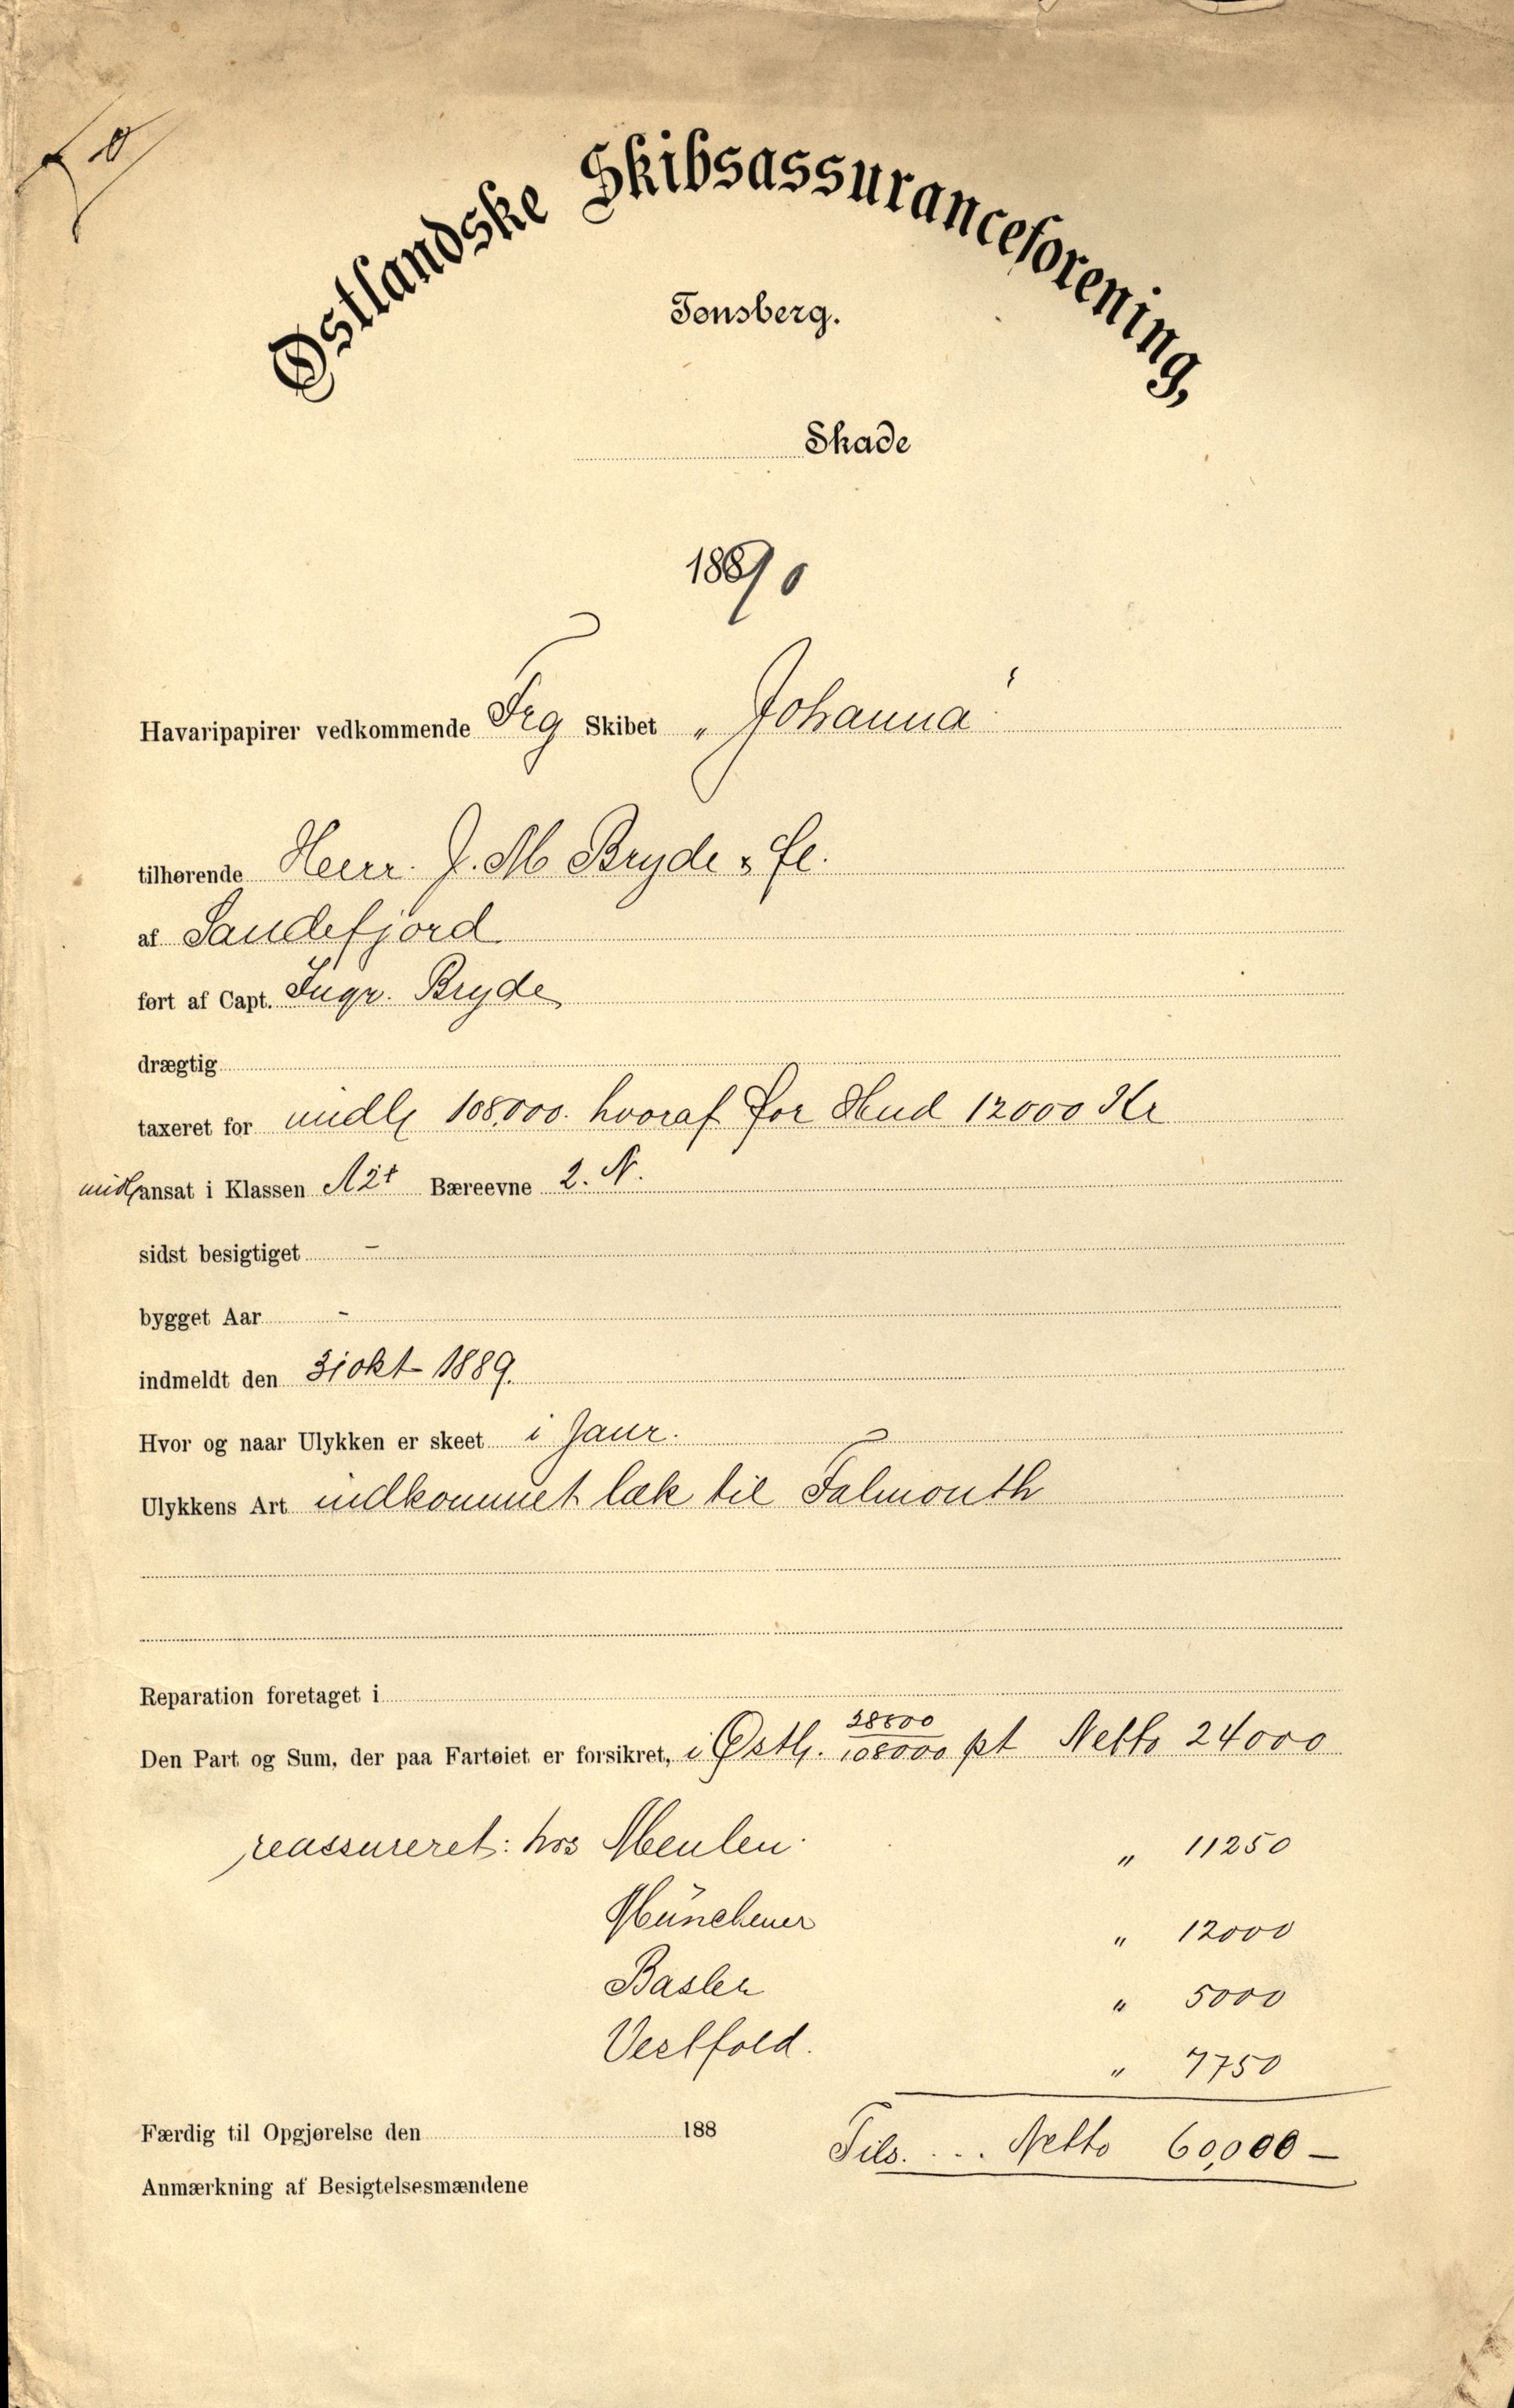 Østlandske Skibsassuranceforening,
Tønsberg.
Skade
1890
Havaripapirer vedkommende Frg Skibet „Johanna"
tilhørende Herr. J. M Bryde & fl.
af Sandefjord
ført af Capt. Ingv. Bryde
drægtig
taxeret for midl 108,000. hvoraf for Hud 12000 Kr
midl ansat i Klassen A2† Bæreevne 2. N.
sidst besigtiget –
bygget Aar –
indmeldt den 31 okt 1889.
Hvor og naar Ulykken er skeet i Janr.
Ulykkens Art indkommet læk til Falmouth
Reparation foretaget i
Den Part og Sum, der paa Fartøiet er forsikret, i Østl. 28800/108000 pt Netto 24000
reassureret: hos Meulen. " 11250
Münchener " 12000
Basler " 5000
Vestfold. " 7750
Færdig til Opgjørelse den 188
Tils. ... Netto 60,000 –
Anmærkning af Besigtelsesmændene